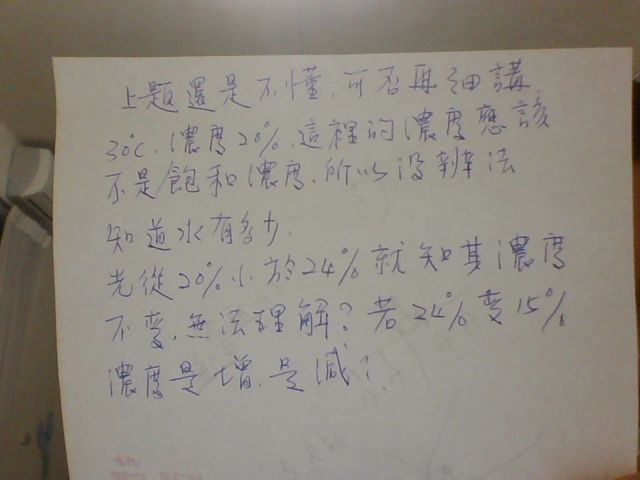 上題還是不懂,可否再細講
30°C、濃度20%,這裡的濃度應該
不是飽和濃度,所以沒辦法
知道水有多少,
光從20%小於24%就知其濃度
不變,無法理解?若24%變15%
濃度是增,是減?